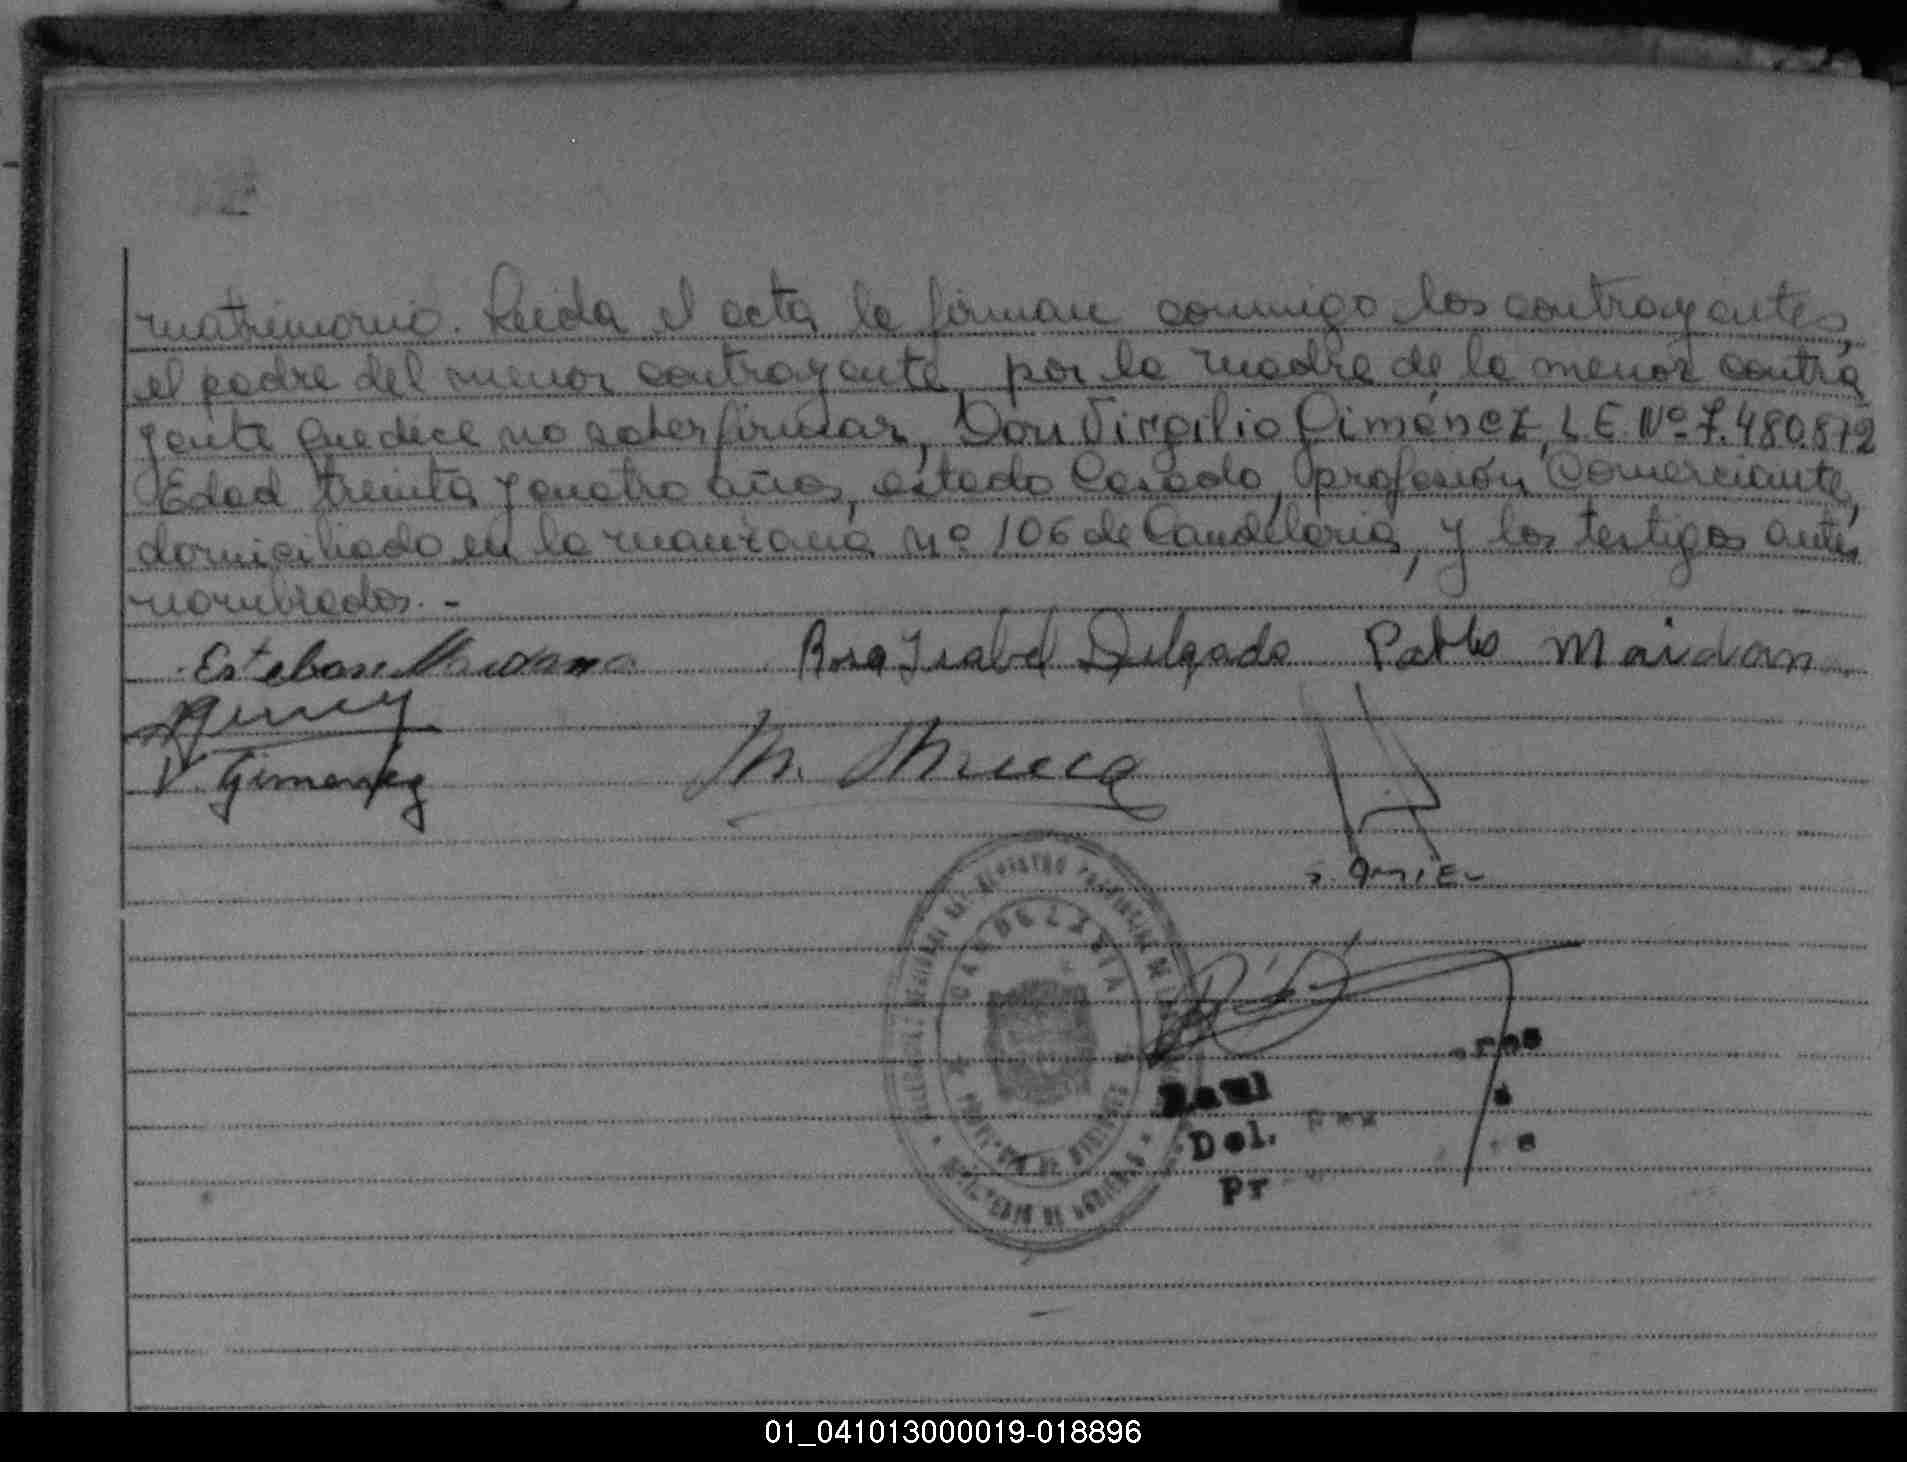 matrimonio. Leida el acta la firman conmigo los contrayentes,
el padre del menor contrayente, por la madre de la menor contra
yente que dice no saber firmar, Don Virgilio Giménez, L E Nº 7.480.872
Edad treinta y cuatro años, estado Casado, profesión Comerciante,
domiciliado en la manzana nº 106 de Candelaria, y los testigos antes
nombrados.-
Esteban Maidana Rosa Isabel Delgado Pablo Maidan
V. Gimenez M.
CANDELARIA
Raul
Del.
Pr
01_041013000019-018896